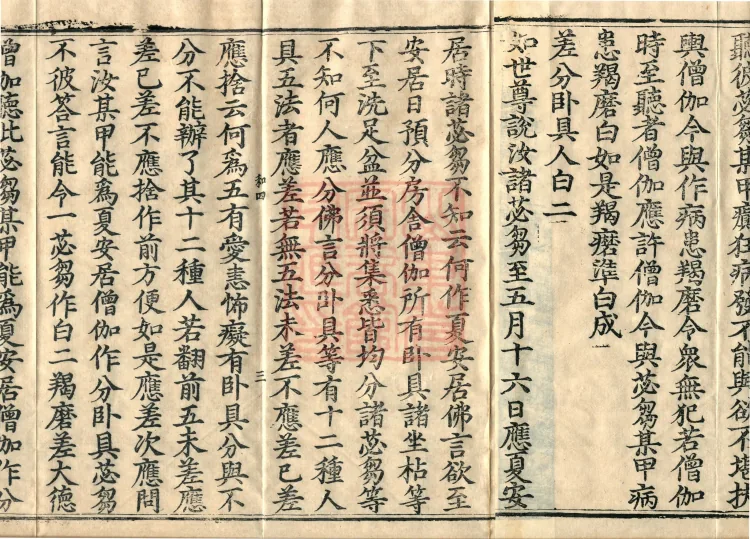 聽彼苾芻某甲癲狂病發不能與欲不堪扶
輿僧伽今與作病患羯磨令衆無犯若僧伽
時至聽者僧伽應許僧伽今與苾芻某甲病
患羯磨白如是羯磨準白成
差分卧具人白二
如世尊說汝諸苾芻至五月十六日應夏安
居時諸苾芻不知云何作夏安居佛言欲至
安居日預分房舍僧伽所有卧具諸坐枮等
下至洗足盆並須將集悉皆均分諸苾芻等
不知何人應分佛言分卧具等有十二種人
具五法者應差若無五法未差不應差已差
和四 三
應捨云何爲五有愛恚怖癡有卧具分與不
分不能辦了其十二種人若翻前五未差應
差已差不應捨作前方便如是應差次應問
言汝某甲能爲夏安居僧伽作分卧具苾芻
不彼答言能令一苾芻作白二羯磨差大德
僧伽聽此苾芻某甲能爲夏安居僧伽作分